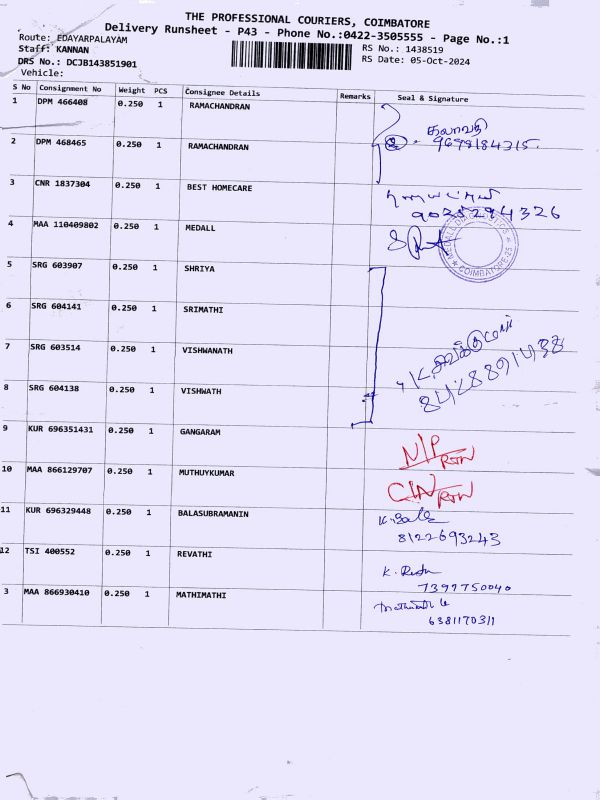 THE PROFESSIONAL COURIERS, COIMBATORE
Delivery Runsheet - P43 - Phone No.:0422-3505555 - Page No.:1
Route: EDAYARPALAYAM
RS No.: 1438519
Staff: KANNAN
RS Date: 05-Oct-2024
DRS No.: DCJB143851901
Vehicle:
S No Consignment No Weight PCS Consignee Details Remarks Seal & Signature
1 DPM 466408 0.250 1 RAMACHANDRAN
கலாவதி
9698184315.
2 DPM 468465 0.250 1 RAMACHANDRAN
3 CNR 1837304 0.250 1 BEST HOMECARE
9025294326
4 MAA 110409802 0.250 1 MEDALL
MEDALL DIAGNOSTICS
COIMBATORE-25
5 SRG 603907 0.250 1 SHRIYA
6 SRG 604141 0.250 1 SRIMATHI
7 SRG 603514 0.250 1 VISHWANATH
8428891438
8 SRG 604138 0.250 1 VISHWATH
9 KUR 696351431 0.250 1 GANGARAM
N/P
RTN
10 MAA 866129707 0.250 1 MUTHUYKUMAR
RTN
11 KUR 696329448 0.250 1 BALASUBRAMANIN
K. Bala
8122693243
12 TSI 400552 0.250 1 REVATHI
7397750040
3 MAA 866930410 0.250 1 MATHIMATHI
6381170311